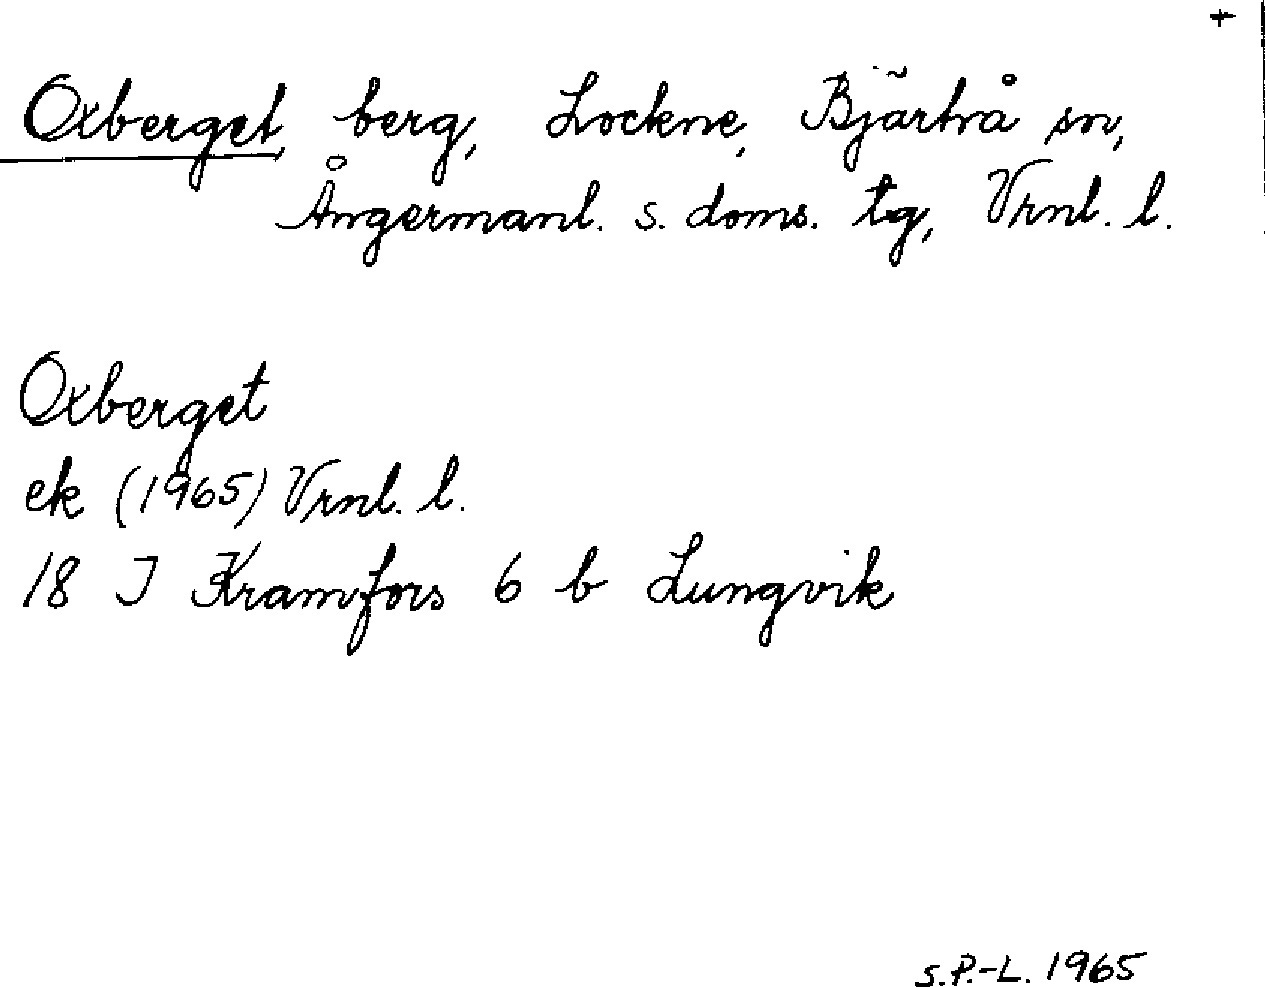 +
Oxberget, berg, Lockne, Bjärtrå sn,
Ångermanl. s. doms. tg, Vrnl. l.
Oxberget
ek (1965) Vrnl. l.
18 J Kramfors 6 b Lungvik
S.P.-L. 1965